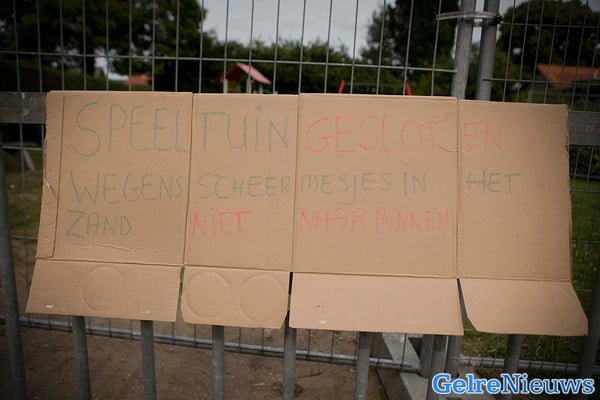 SPEELTUIN GESLOTEN
WEGENS SCHEERMESJES IN HET
ZAND NIET NAAR BINNEN
GelreNieuws